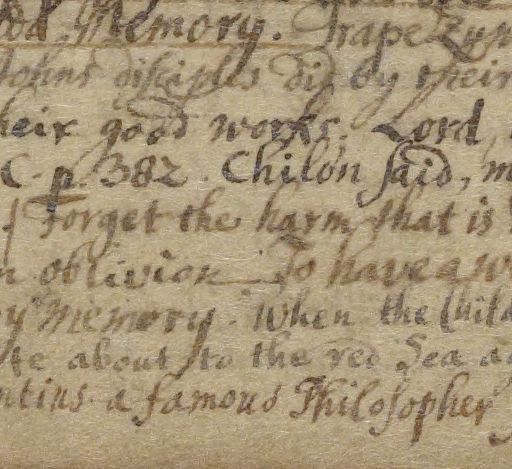 Memory. Trapezun
Johns disciples did by their
heir good works. Lord,
C. p. 382. Chilon said, m
Forget the harm that is
n oblivion To have a we
y Memory. When the Child
te about to the red Sea a
ntius a famous Philosopher